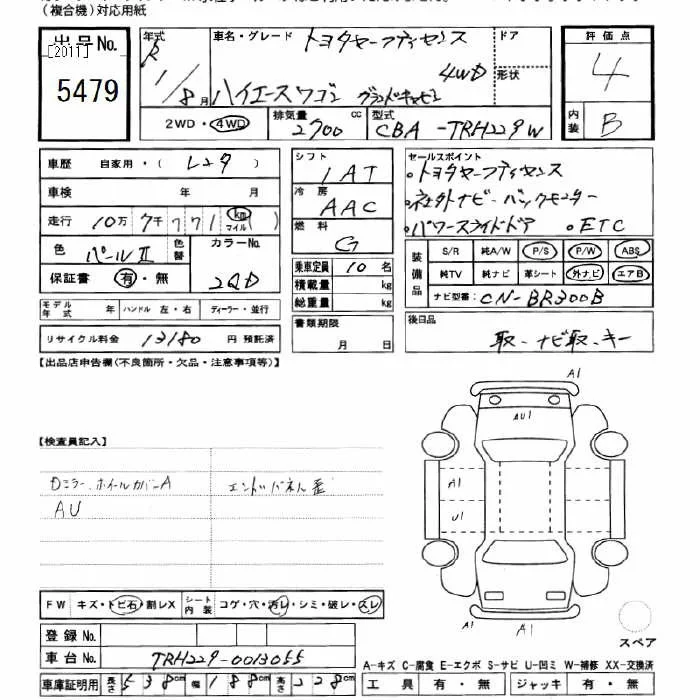 （複合機）対応用紙
出品No.
[2011]
5479
年式 R 1/8月
車名・グレード トヨタヤーフティセンス
ハイエースワゴン グランドキャビン 4WD
ドア
形状
2WD・4WD
排気量 2700 cc
型式 CBA-TRH229W
評価点 4
内装 B
車歴 自家用・（レンタ
車検 年 月
走行 10万7千771 km マイル（ ）
色 パールⅡ 色替 カラーNo.
保証書 有・無 2QD
モデル年式 年 ハンドル 左・右 ディーラー・並行
リサイクル料金 13180 円 預託済
シフト IAT
冷房 AAC
燃料 G
乗車定員 10 名
積載量 kg
総重量 kg
書類期限 月 日
セールスポイント
・トヨタヤーフティセンス
・社外ナビ・バックモニター
・パワースライドドア ・ETC
装備品 S/R 純A/W P/S P/W ABS
純TV 純ナビ 革シート 外ナビ エアB
ナビ型番 CN-BR300B
後日品 取、ナビ取、キー
【出品店申告欄（不良箇所・欠品・注意事項等）】
【検査員記入】
Dミラー、ホイールカバーA エンドパネル歪
AU
A1
AU1
A1
U1
A1
A1
スペア
FW キズ・トビ石・割レX シート内装 コゲ・穴・汚レ・シミ・破レ・スレ
登録No.
車台No. TRH229-0013055
車庫証明用 長さ 538cm 幅 188cm 高さ 228cm
A-キズ C-腐食 E-エクボ S-サビ U-凹ミ W-補修 XX-交換済
工具 有・無 ジャッキ 有・無